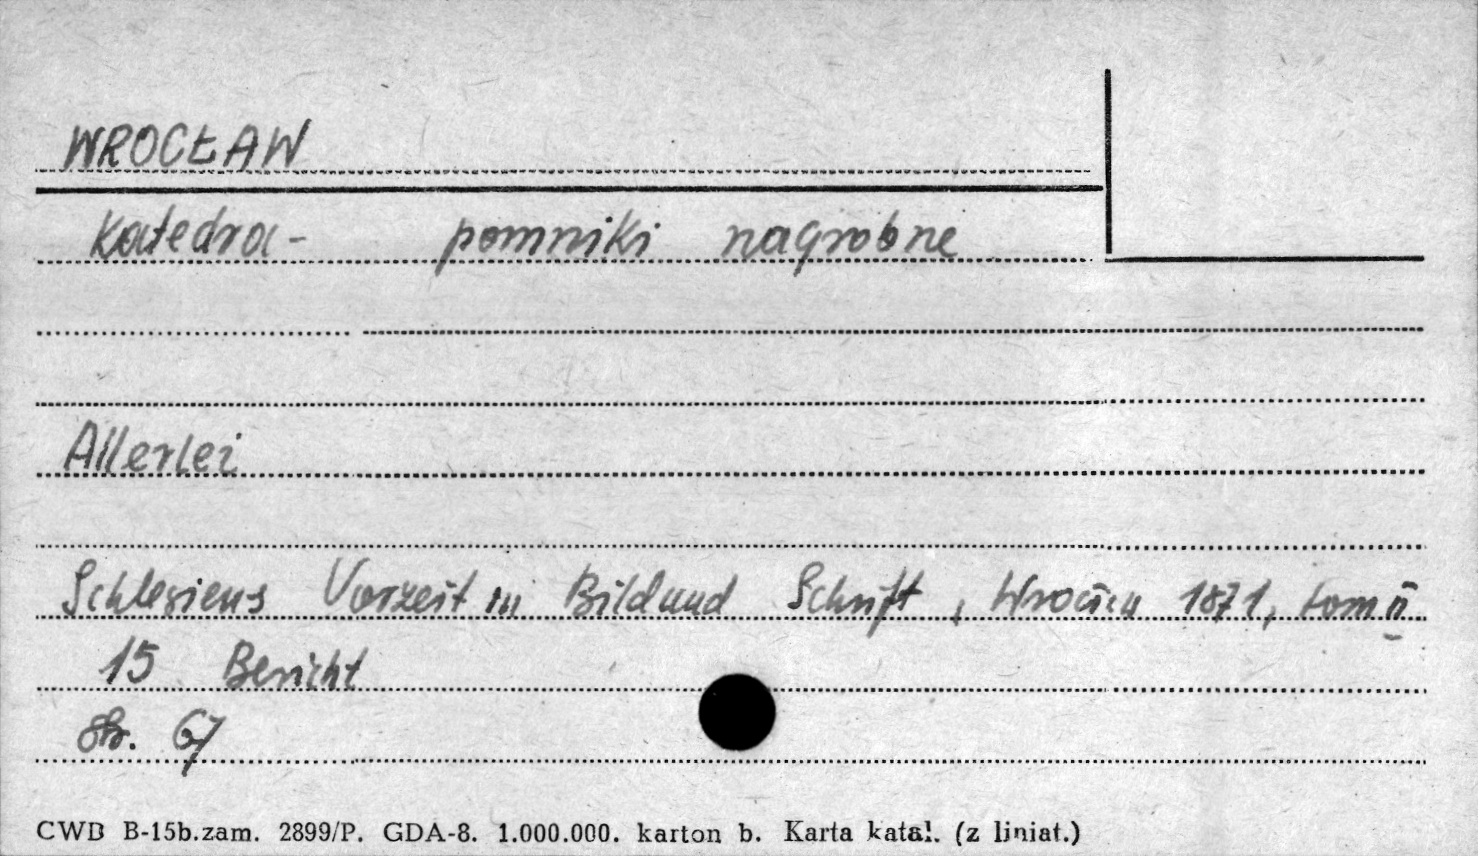 WROCŁAW
Katedra - pomniki nagrobne
Allerlei
Schlesiens Vorzeit in Bild und Schrift, Wrocław 1871, tom II
15 Bericht
str. 67
CWD B-15b.zam. 2899/P. GDA-8. 1.000.000. karton b. Karta katal. (z liniat.)